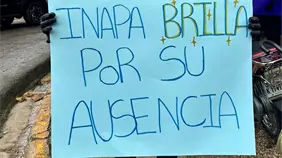 INAPA BRILLA
POR SU
AUSENCIA